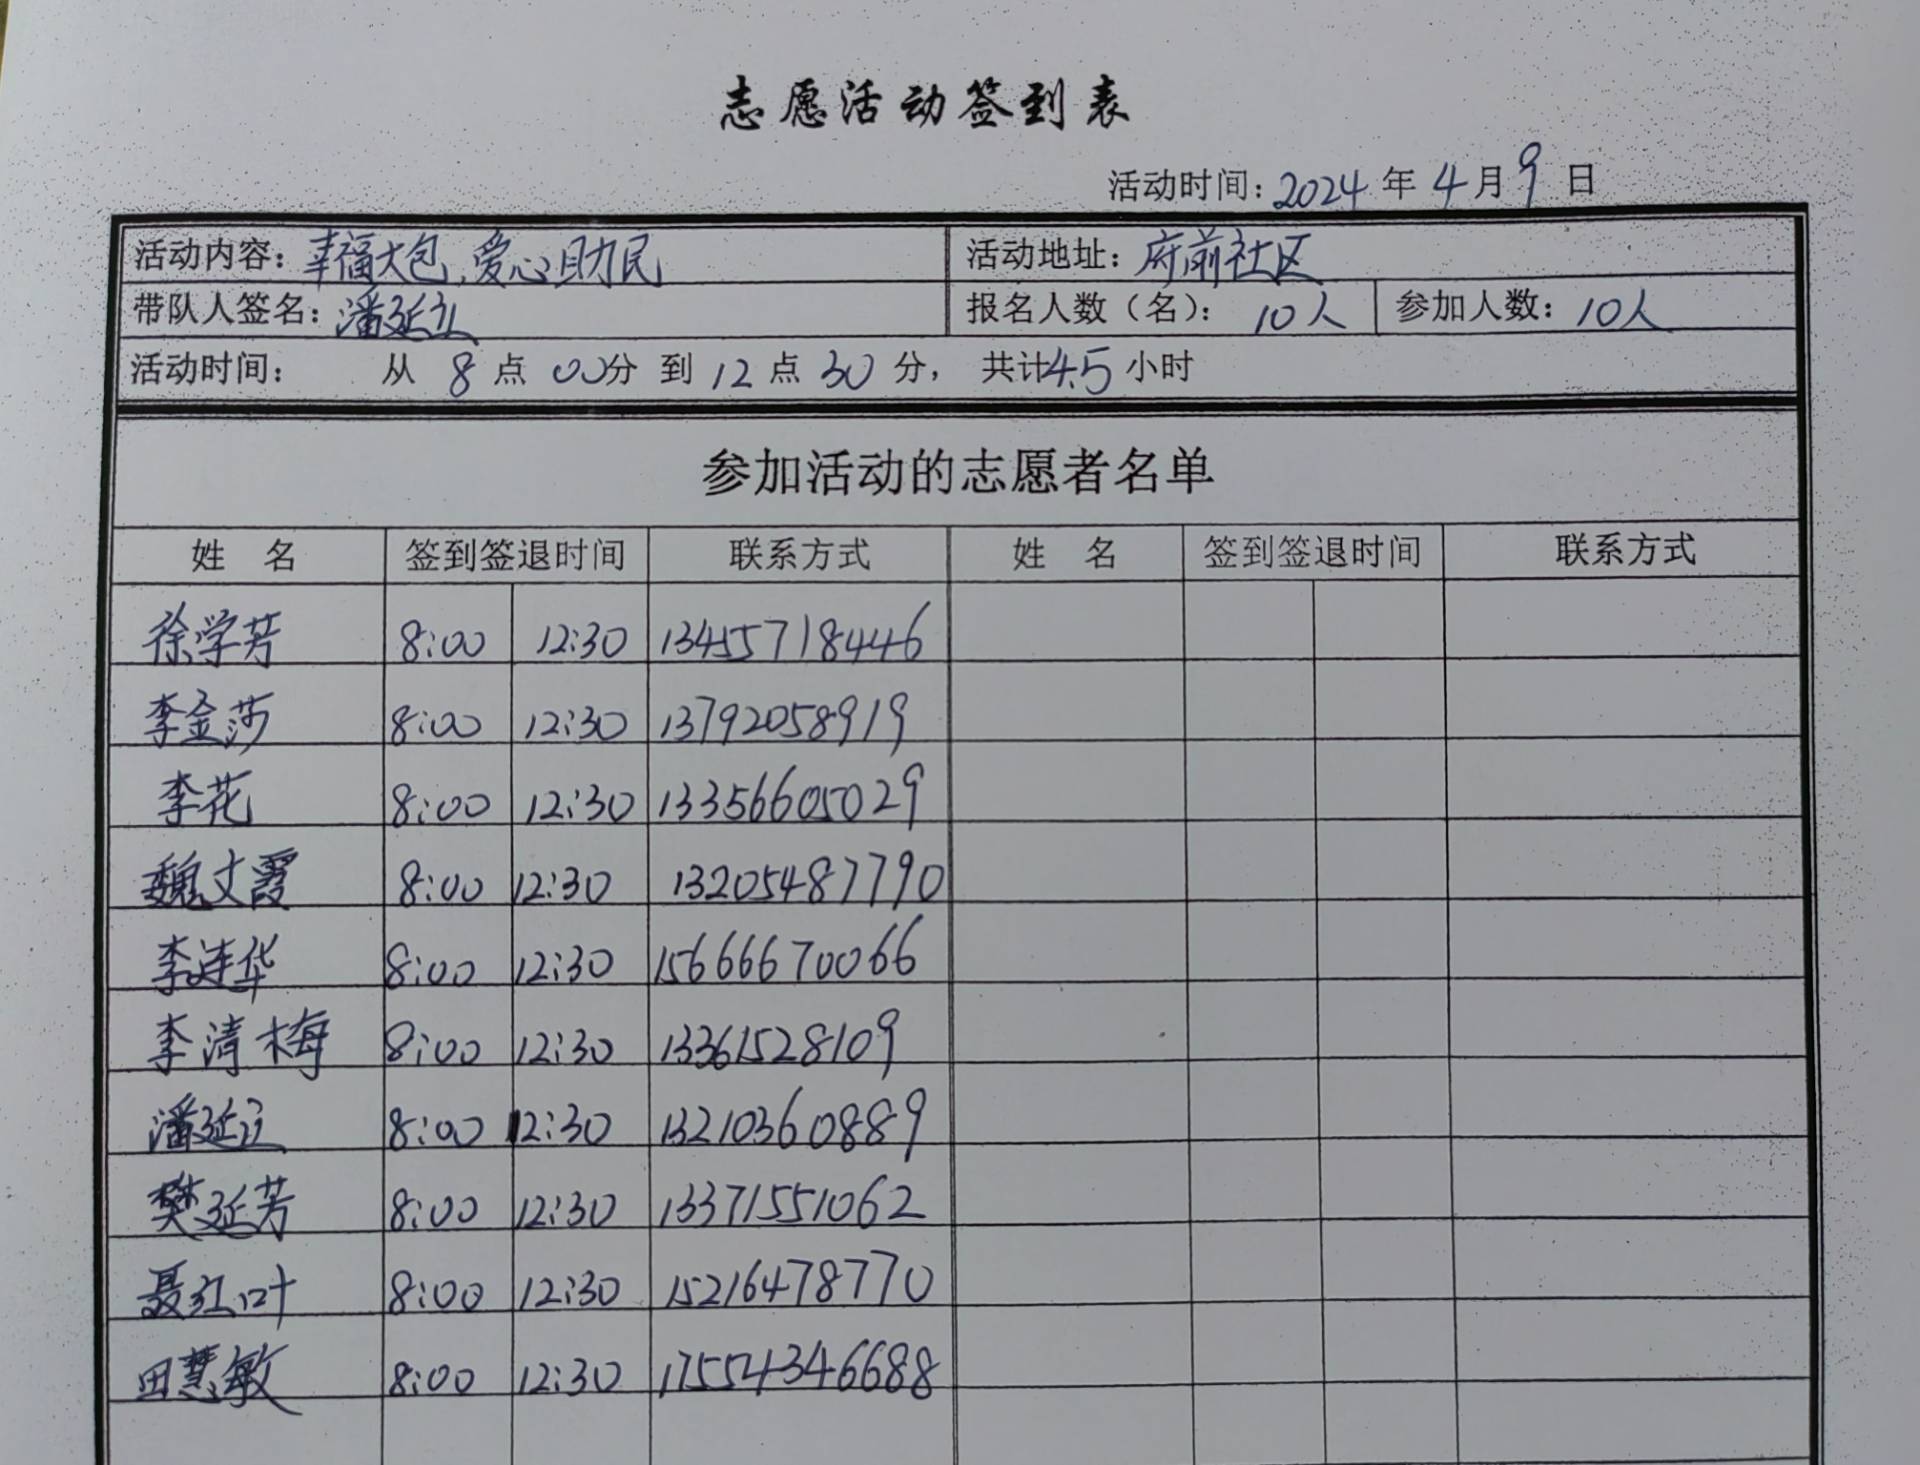 志愿活动签到表
活动时间：2024年4月9日
活动内容：幸福大包，爱心助民 活动地址：府前社区
带队人签名：潘延立 报名人数（名）：10人 参加人数：10人
活动时间： 从8点00分到12点30分，共计4.5小时
参加活动的志愿者名单
姓 名 签到签退时间 联系方式 姓 名 签到签退时间 联系方式
徐学芳 8:00 12:30 13455718446
李金莎 8:00 12:30 13792058919
李花 8:00 12:30 13356605029
魏文霞 8:00 12:30 13205487790
李连华 8:00 12:30 15666670066
李清梅 8:00 12:30 13361528109
潘延立 8:00 12:30 13210360889
樊延芳 8:00 12:30 13371551062
聂红叶 8:00 12:30 15216478770
田慧敏 8:00 12:30 17554346688